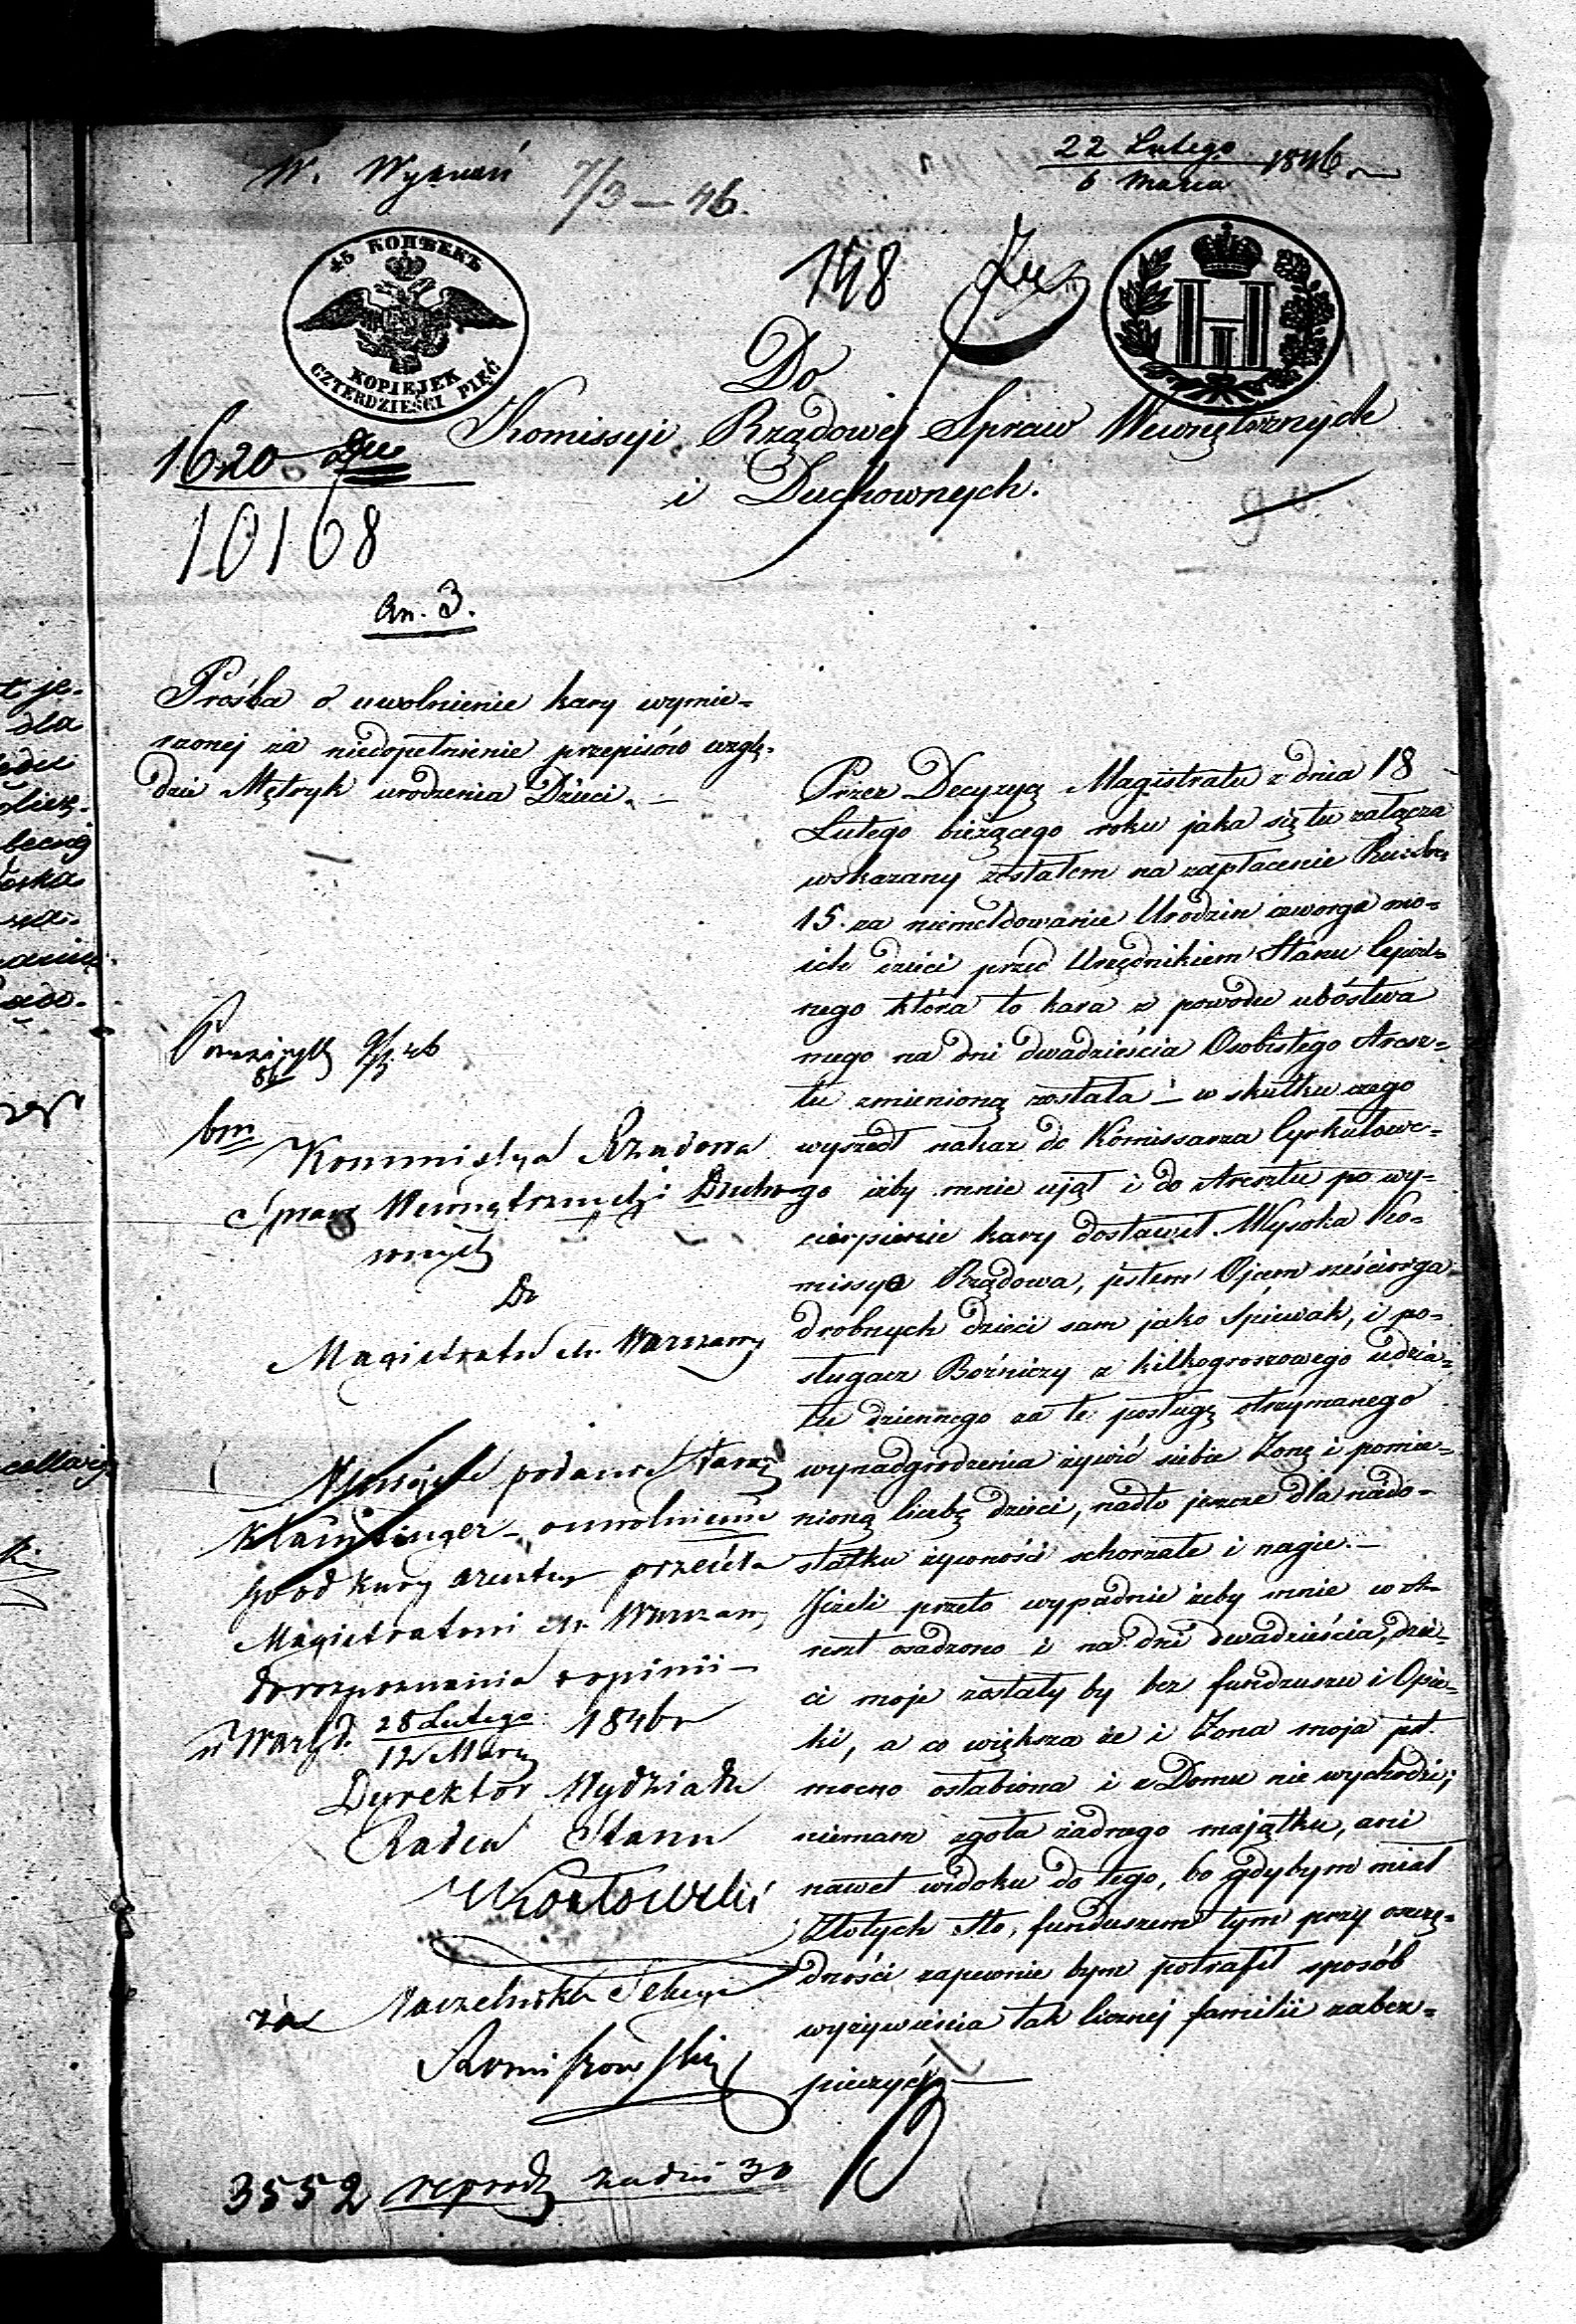 W. Wyznań
7/3 – 46.
22 Lutego
6 Marca
1846
45 КОПѢЕКЪ
KOPIEJEK
CZTERDZIEŚCI PIĘĆ
148
Do
Komissyi Rządowej Spraw Wewnętrznych
i Duchownych.
1620
10168
An. 3.
Prośba o uwolnienie kary wymie=
rzonej za niedopełnienie przepisów wzglę=
dzie Metryk urodzenia Dzieci. —
Przez Decyzyą Magistratu z dnia 18
Lutego bieżącego roku jaka się tu załącza
wskazany zostałem na zapłacenie
15. za niemeldowanie Urodzin czworga mo=
ich dzieci przed Urzędnikiem Stanu Cywil=
nego która to kara z powodu ubóstwa
mego na dni dwadzieścia Osobistego Aresz=
tu zmienioną została – w skutku czego
wyszedł nakaz do Kómissarza Cyrkułowe=
go iżby mnie ujął i do Aresztu po wy=
cierpienie kary dostawił. Wysoka Ko=
missyo Rządowa, jestem Ojcem sześciorga
drobnych dzieci sam jako Śpiewak, i po=
sługacz Bóźniczy z kilkogroszowego udzia=
łu dziennego za te posługę otrzymanego
wynadgrodzenia żywić siebie Żonę i pomie=
nioną liczbę dzieci, nadto jeszcze dla niedo=
statku żywności schorzałe i nagie. —
Jeżeli przeto wypadnie żeby mnie w A=
reszt osadzono i na dni dwadzieścia, dzie=
ci moje zostały by bez funduszu i Opie=
ki, a co większa że i Żona moja jest
mocno osłabiona i z Domu nie wychodzi;
niemam zgoła żadnego majątku, ani
nawet widoku do tego, bo gdybym miał
Złotych Sto, funduszem tym przy oszczę=
dności zapewnie bym potrafił sposób
wyżywienia tak licznej familii zabez=
pieczyć —
9/3 46
Kommissya Rządowa
Spraw Wewnętrznych i Ducho=
wnych
Do
Magistratu M. Warszawy
podanie
o uwolnienie
go od kary aresztu przesyła
Magistratowi M. Warszawy
do rozpoznania i opinii —
w Warsz. d. 28 Lutego
12 Marca
1846 r
Dyrektor Wydziału
Radca Stanu
za Naczelnika Sekcyi
3552 za dni 30